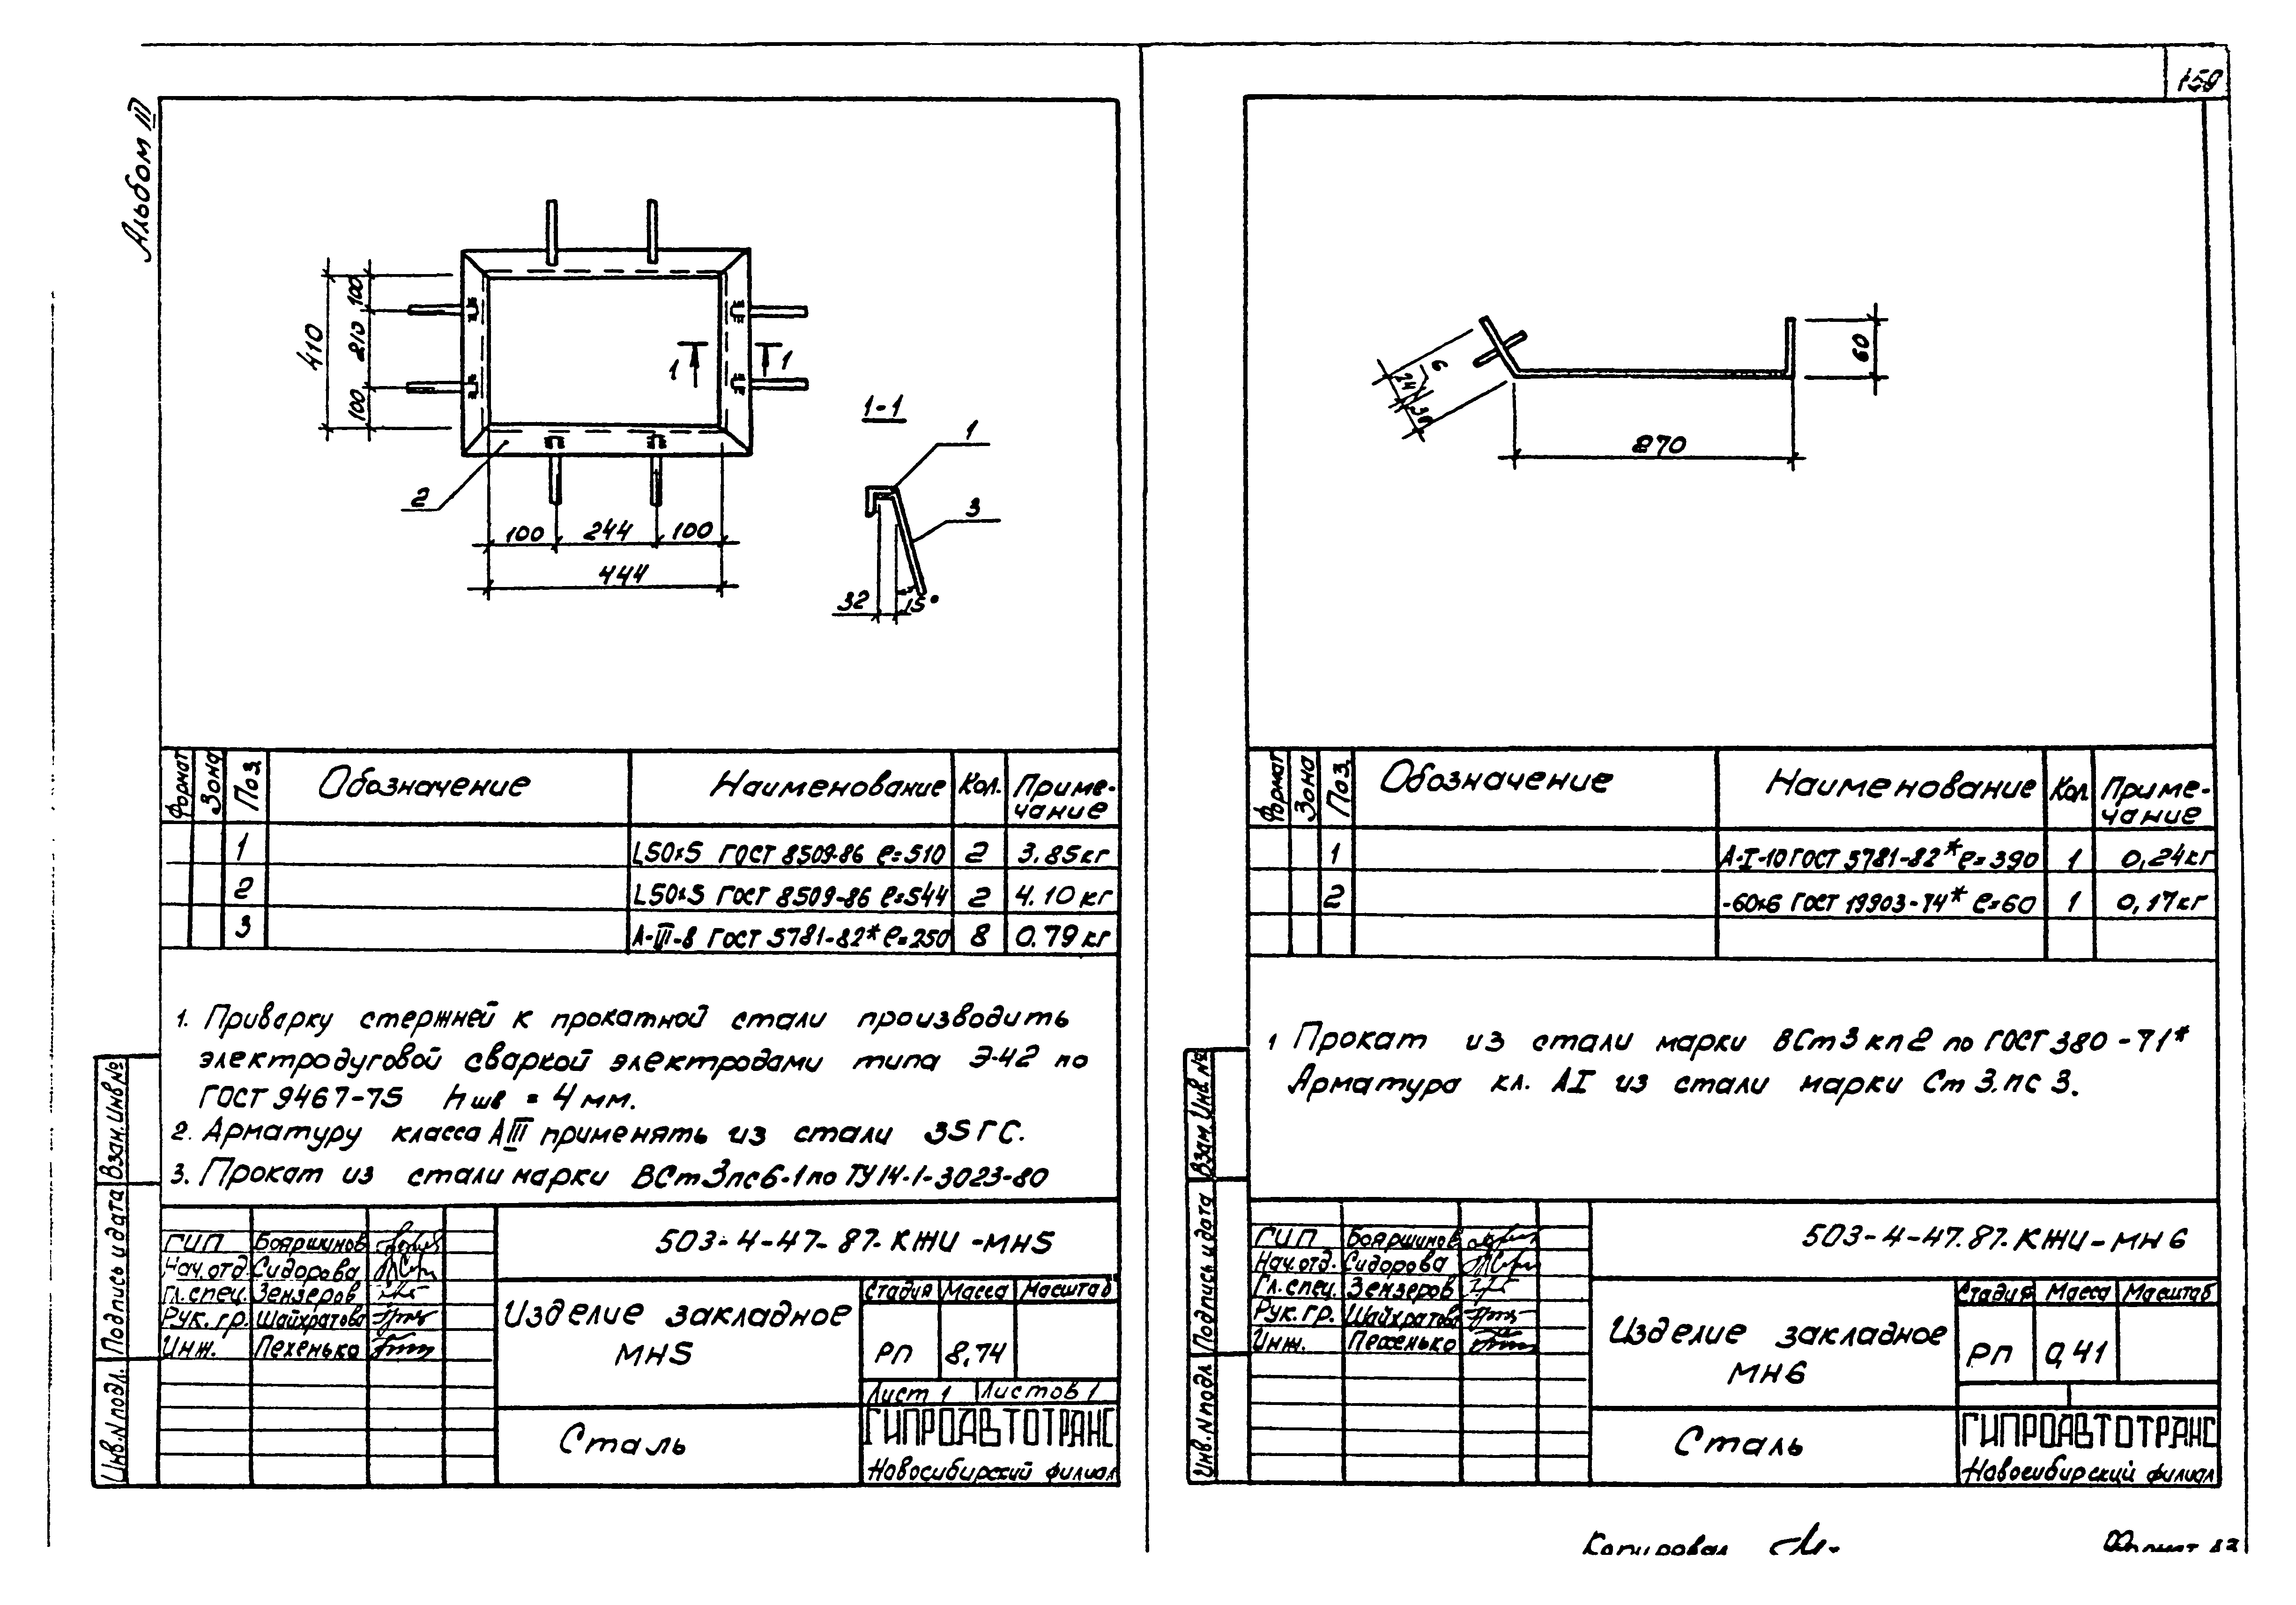 159
Альбом III
410
100
210
100
1
1
1-1
1
3
2
100
244
100
444
32
15°
Формат
Зона
Поз.
Обозначение
Наименование
Кол.
Приме-
чание
1 L50×5 ГОСТ 8509-86 ℓ=510 2 3.85кг
2 L50×5 ГОСТ 8509-86 ℓ=544 2 4.10 кг
3 А-III-8 ГОСТ 5781-82* ℓ=250 8 0.79 кг
1. Приварку стержней к прокатной стали производить
электродуговой сваркой электродами типа Э-42 по
ГОСТ 9467-75 hшв = 4 мм.
2. Арматуру класса АIII применять из стали 35ГС.
3. Прокат из стали марки ВСт3пс6-1 по ТУ14-1-3023-80
Взам. Инв №
Подпись и дата
Инв. N подл.
ГИП Бояршинов
Нач. отд. Сидорова
Гл. спец. Зензеров
Рук. гр. Шайхратова
Инж. Пехенько
503-4-47-87-КЖИ-МН5
Изделие закладное
МН5
Стадия Масса Масштаб
РП 8,74
Лист 1 Листов 1
Сталь
ГИПРОАВТОТРАНС
Новосибирский филиал
60
6
24
30
270
Формат
Зона
Поз.
Обозначение
Наименование
Кол.
Приме-
чание
1 А-I-10 ГОСТ 5781-82* ℓ=390 1 0,24кг
2 -60×6 ГОСТ 19903-74* ℓ=60 1 0,17кг
1 Прокат из стали марки ВСт3кп2 по ГОСТ 380-71*
Арматура кл. АI из стали марки Ст3.пс3.
Взам. Инв. №
Подпись и дата
Инв. N подл
ГИП Бояршинов
Нач. отд. Сидорова
Гл. спец. Зензеров
Рук. гр. Шайхратова
Инж. Пехенько
503-4-47.87.КЖИ-МН6
Изделие закладное
МН6
Стадия Масса Масштаб
РП 0,41
Сталь
ГИПРОАВТОТРАНС
Новосибирский филиал
Копировал
Формат